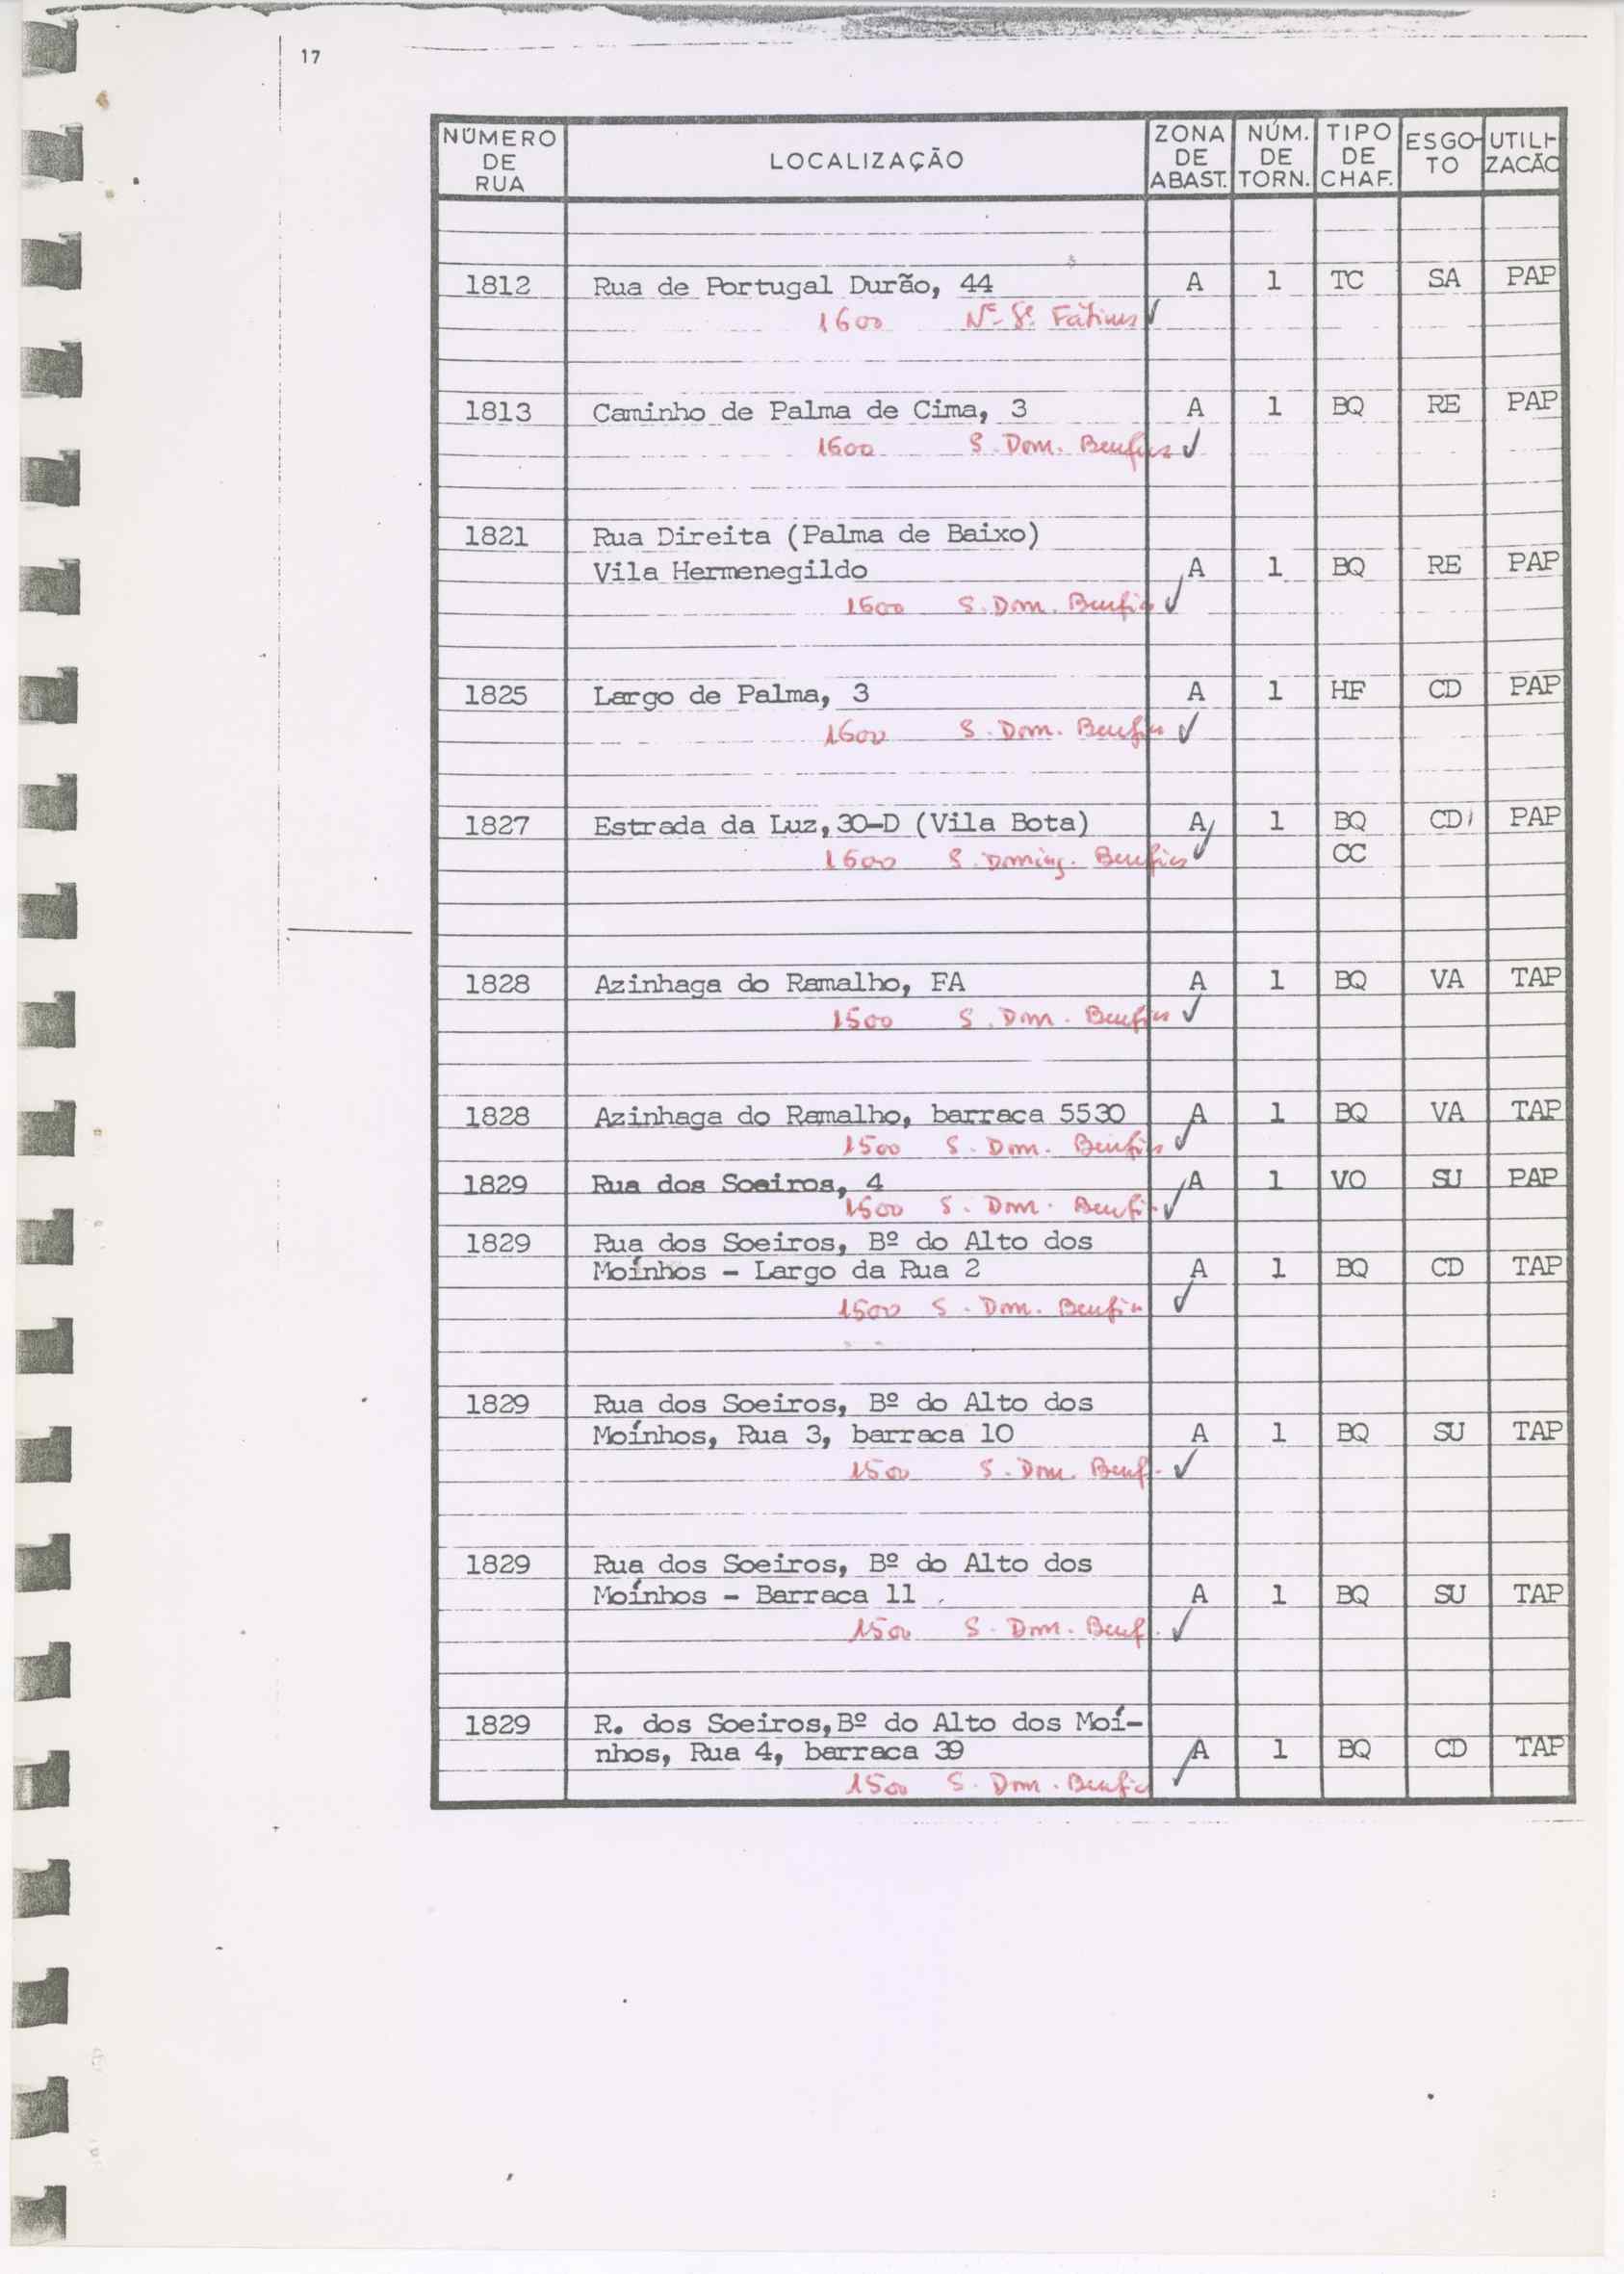 17
NÚMERO DE RUA LOCALIZAÇÃO ZONA DE ABAST. NÚM. DE TORN. TIPO DE CHAF. ESGO-TO UTILI-ZACÃO
1812 Rua de Portugal Durão, 44 A 1 TC SA PAP
1600 Nª Sª Fátima ✓
1813 Caminho de Palma de Cima, 3 A 1 BQ RE PAP
1600 S. Dom. Benfica ✓
1821 Rua Direita (Palma de Baixo)
Vila Hermenegildo A 1 BQ RE PAP
1600 S. Dom. Benfica ✓
1825 Largo de Palma, 3 A 1 HF CD PAP
1600 S. Dom. Benfica ✓
1827 Estrada da Luz, 30-D (Vila Bota) A 1 BQ CD PAP
1600 S. Doming. Benfica ✓ CC
1828 Azinhaga do Ramalho, FA A 1 BQ VA TAP
1500 S. Dom. Benfica ✓
1828 Azinhaga do Ramalho, barraca 5530 A 1 BQ VA TAP
1500 S. Dom. Benfica ✓
1829 Rua dos Soeiros, 4 A 1 VO SU PAP
1500 S. Dom. Benfi. ✓
1829 Rua dos Soeiros, Bº do Alto dos
Moínhos - Largo da Rua 2 A 1 BQ CD TAP
1500 S. Dom. Benfica ✓
1829 Rua dos Soeiros, Bº do Alto dos
Moínhos, Rua 3, barraca 10 A 1 BQ SU TAP
1500 S. Dom. Benf. ✓
1829 Rua dos Soeiros, Bº do Alto dos
Moínhos - Barraca 11 A 1 BQ SU TAP
1500 S. Dom. Benf. ✓
1829 R. dos Soeiros, Bº do Alto dos Moí-
nhos, Rua 4, barraca 39 A 1 BQ CD TAP
1500 S. Dom. Benfic ✓